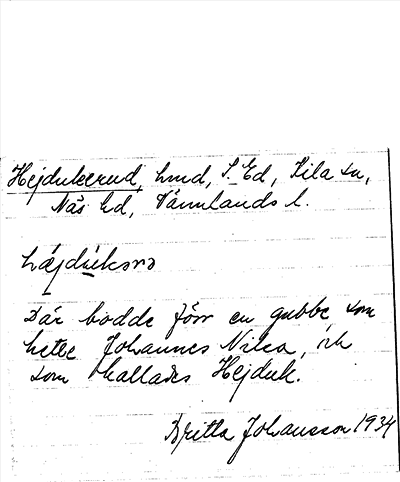 Hejdukerud, hmd, S. Ed, Kila sn,
Näs hd, Värmlands l.
hæjdukərə
Där bodde förr en gubbe som
hette Johannes Nilsa, och
som kallades Hejduk.
Britta Johansson 1934